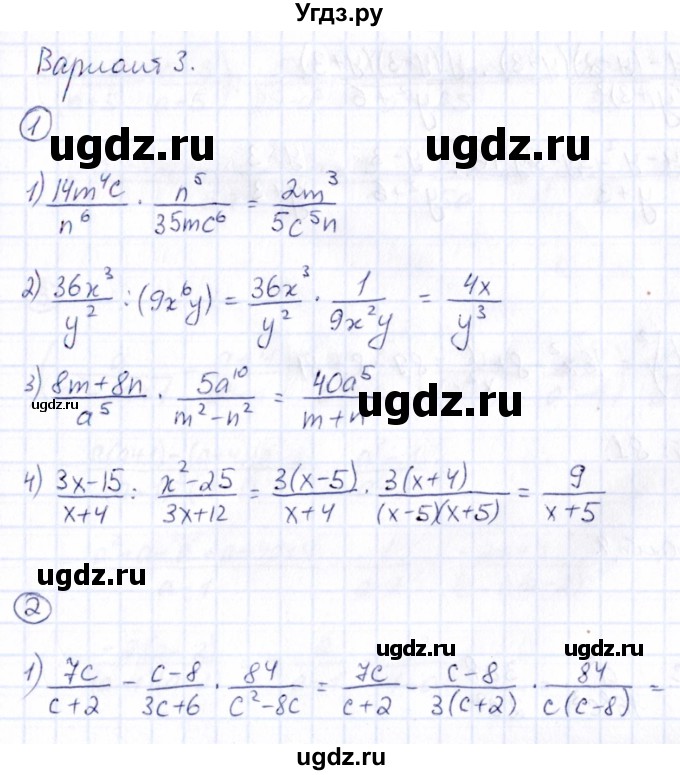 Угдз.ру
Вариант 3.
ugdz.ru
1
ugdz.ru
1) 14m⁴c/n⁶ · n⁵/35mc⁶ = 2m³/5c⁵n
2) 36x³/y² : (9x⁶y) = 36x³/y² · 1/9x²y = 4x/y³
3) 8m+8n/a⁵ · 5a¹⁰/m²-n² = 40a⁵/m+n
ugdz.ru ugdz.ru
4) 3x-15/x+4 : x²-25/3x+12 = 3(x-5)/x+4 · 3(x+4)/(x-5)(x+5) = 9/x+5
ugdz.ru
2
ugdz.ru ugdz.ru
1) 7c/c+2 - c-8/3c+6 · 84/c²-8c = 7c/c+2 - c-8/3(c+2) · 84/c(c-8) =
ugdz.ru